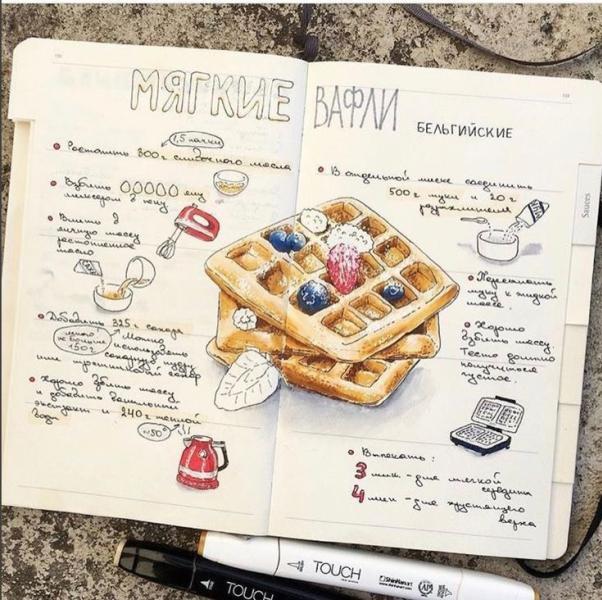 МЯГКИЕ ВАФЛИ
БЕЛЬГИЙСКИЕ
1,5 пачки
Растопить 300г сливочного масла
Взбить
миксером в пену
Влить в
яичную массу
растопленное
масло
Добавить 325г сахара
150г
Можно
использовать
сахарную пудру
или тростниковый сахар
Хорошо взбить массу
и добавить ванильный
экстракт и 240г теплой
воды
~50°
В отдельной миске соединить
500г муки и 20г
разрыхлителя
муку к жидкой
массе.
Хорошо
взбить массу.
Тесто должно
получиться
густое.
Выпекать:
3 мин - для мягкой
середины
4 мин - для хрустящего
верха
Sauces
TOUCH
ShinHanart
TOUCH